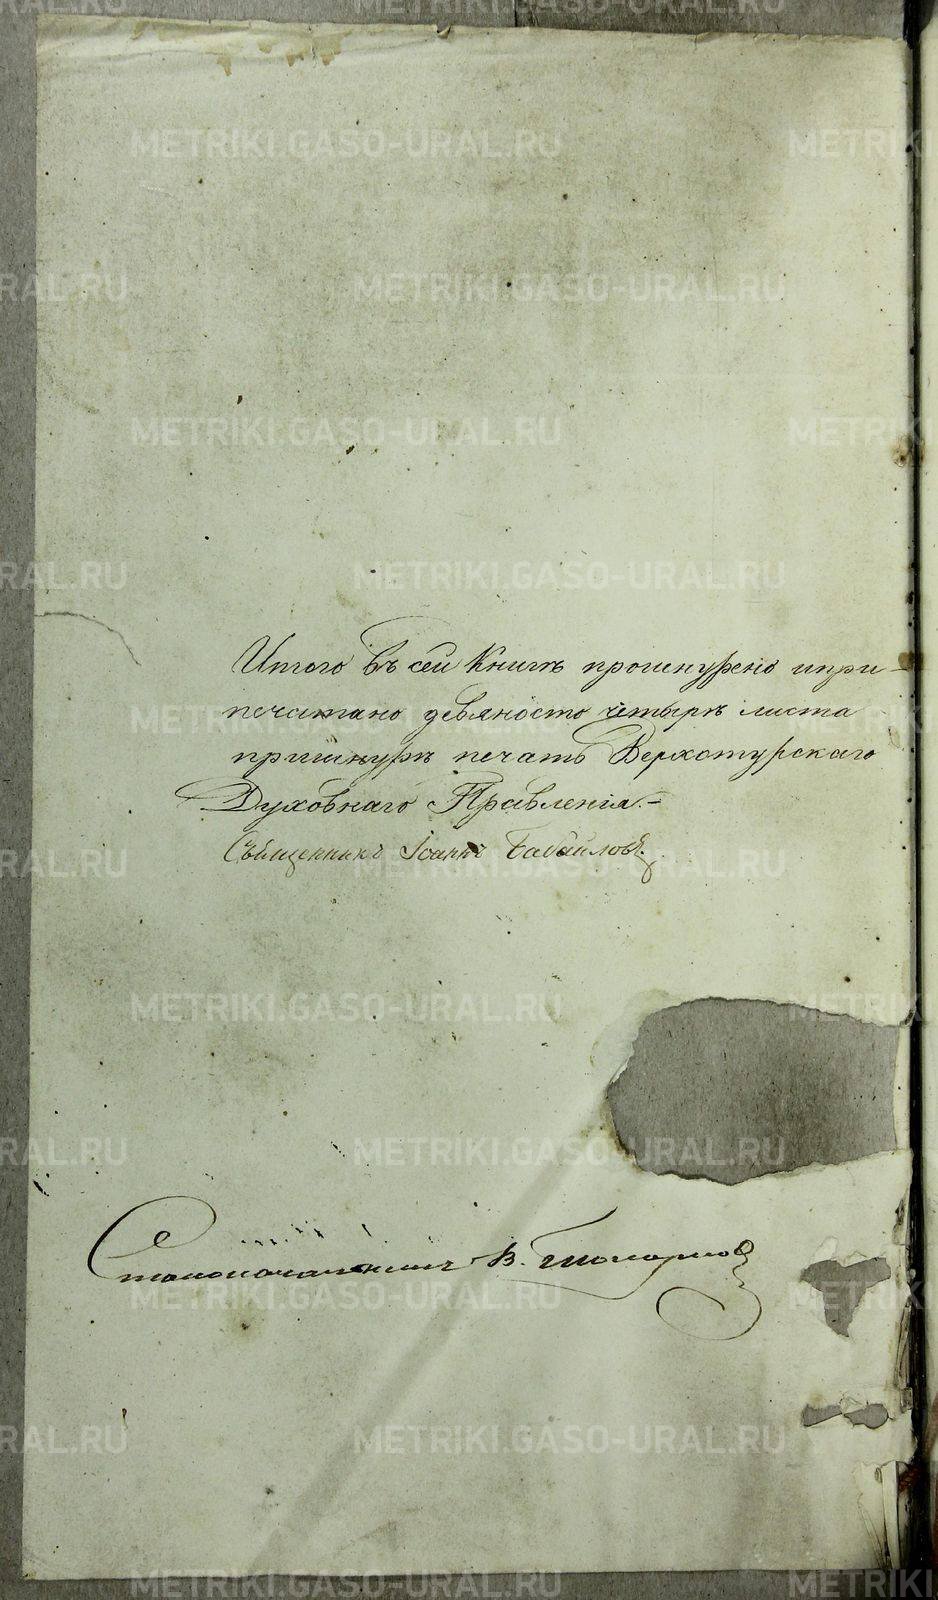 Итого въ сей Книгѣ прошнурено и при-
печатано девяносто четырѣ листа
при шнурѣ печать Верхотурскаго
Духовнаго Правленія.-
Священникъ Іоаннъ Бабайловъ.
Столоначальникъ В.
METRIKI.GASO-URAL.RU